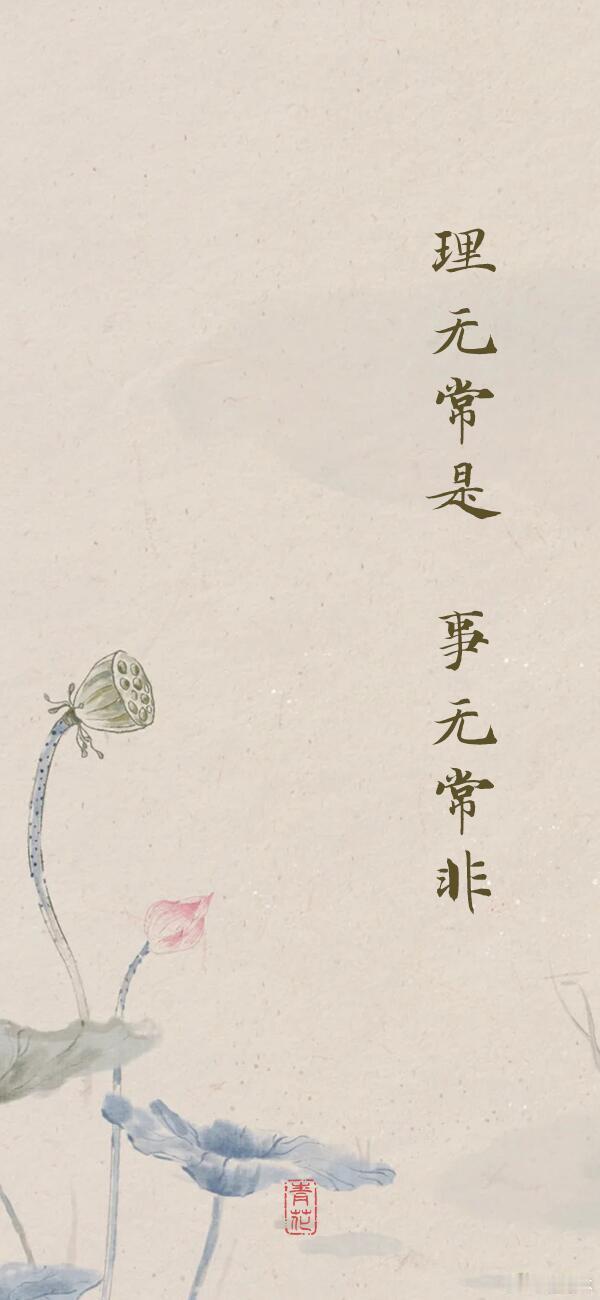 理无常是 事无常非
青花